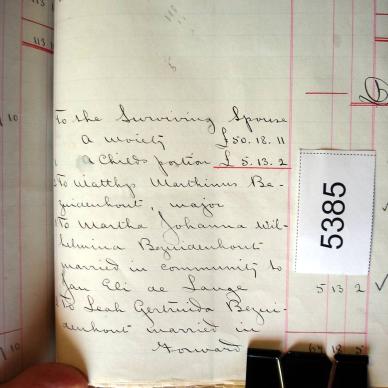 113
113
10
To the Surviving Spouse
a moiety £50.18.11
a Childs portion £ 5.13.2
To Matthys Marthinus Be-
zuidenhout, major
To Martha Johanna Wil-
helmina Bezuidenhout
married in community to
Jan Eli de Lange 5 13 2
To Leah Gertruida Bezui-
denhout married in
Forward
10
5385